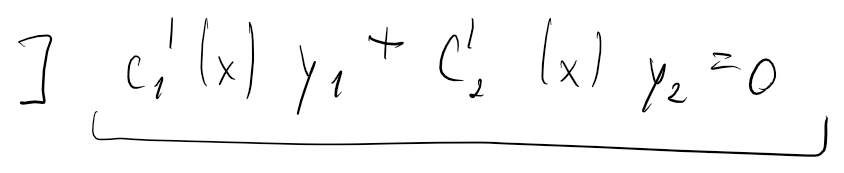 ] c₁'(x) y₁ + c₂'(x) y₂ = 0